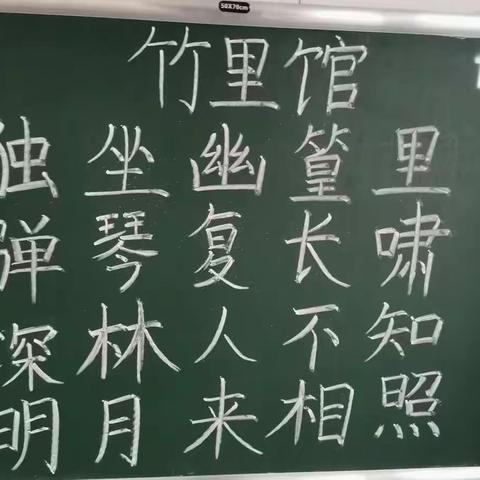 50X70cm
竹里馆
独坐幽篁里
弹琴复长啸
深林人不知
明月来相照